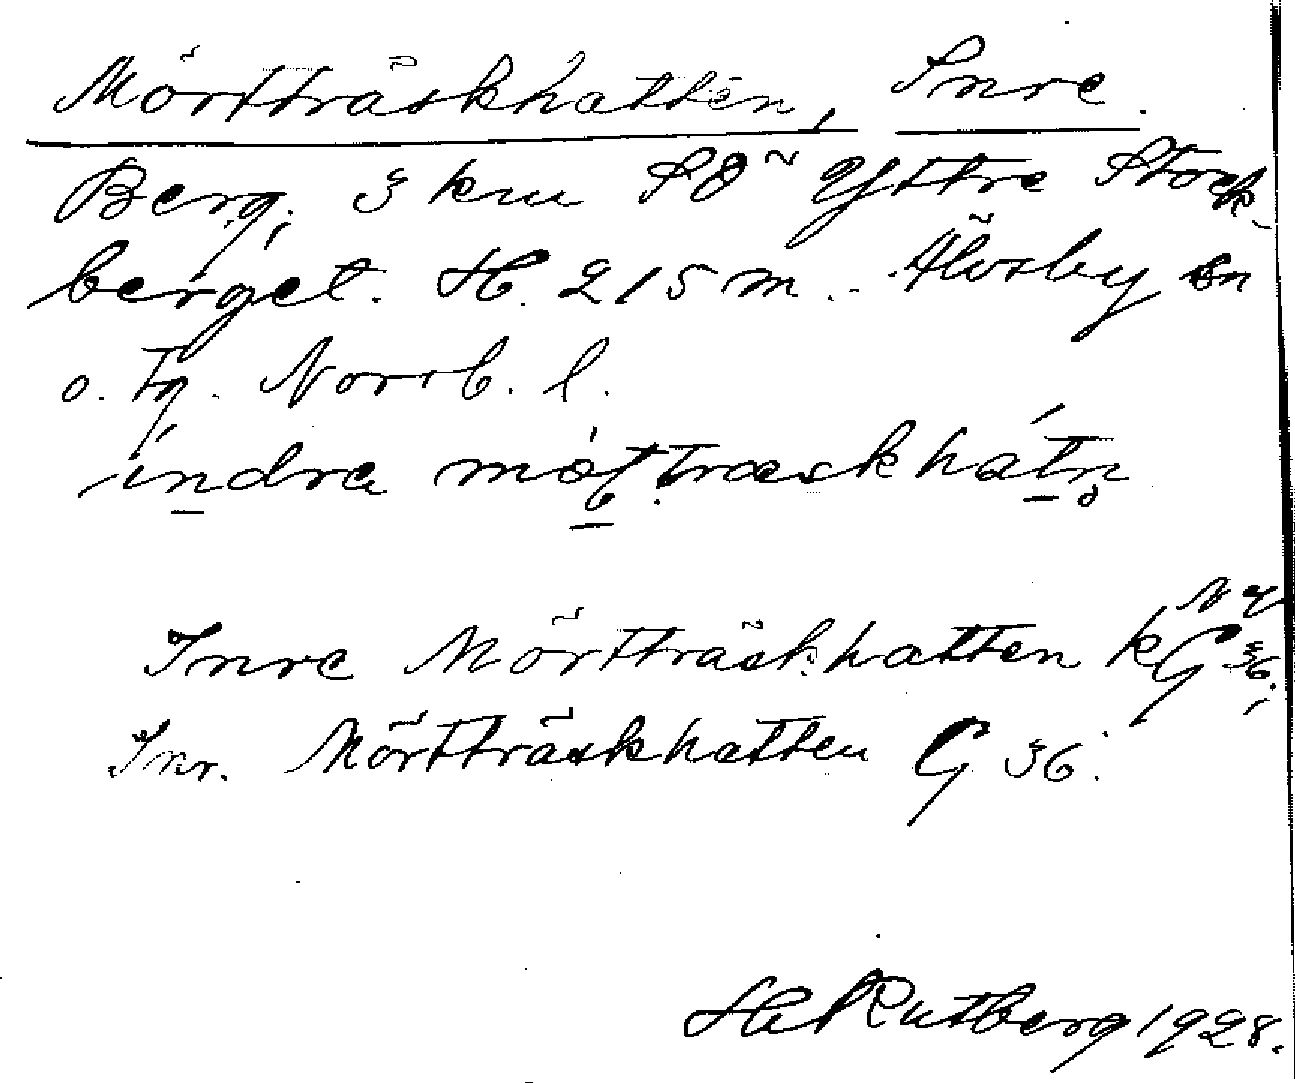 Mörtträskhatten, Inre.
Berg, 3 km SÖ Yttre Stock-
berget. H. 215 m. Älvsby sn
o. tg. Norrb. l.
indra möttræskhátn
Inre Mörtträskhatten k G 36,
Inr. Mörtträskhatten G 36.
H. Rutberg 1928.